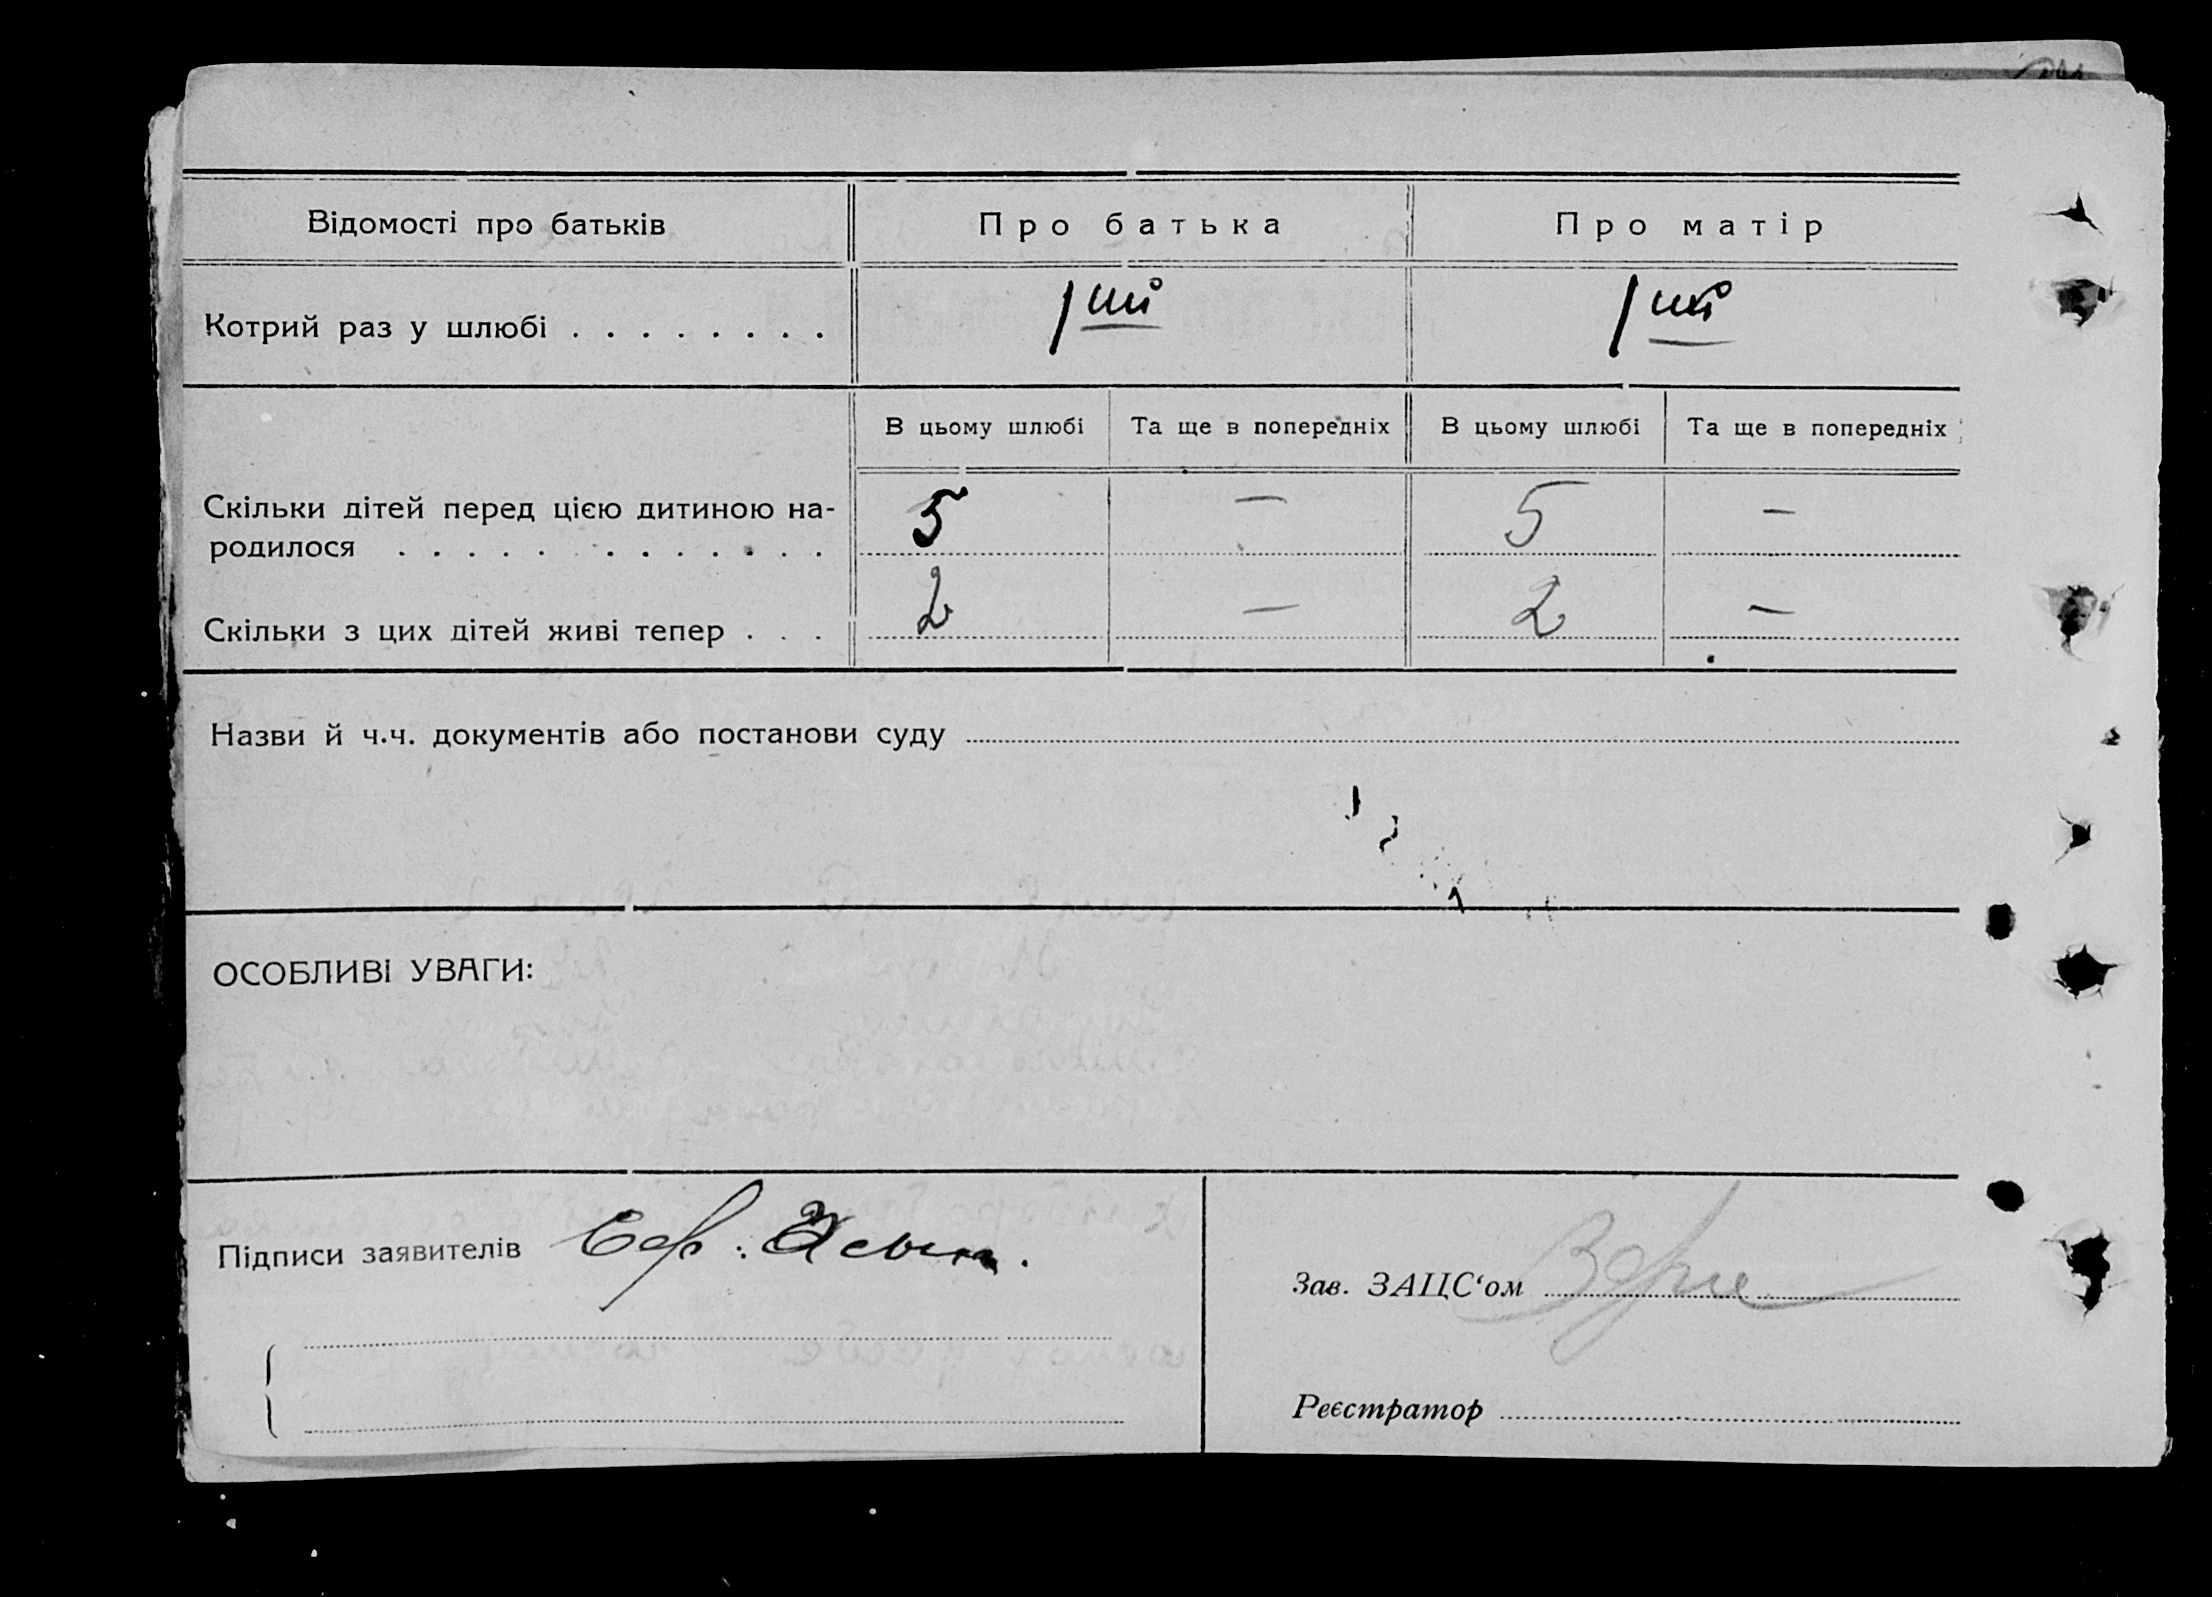 Відомості про батьків
Про батька
Про матір
Котрий раз у шлюбі . . . . . . . .
1ший
1ший
В цьому шлюбі
Та ще в попередніх
В цьому шлюбі
Та ще в попередніх
Скільки дітей перед цією дитиною на-
родилося . . . . . . . . . . . . .
5
—
5
—
Скільки з цих дітей живі тепер . . .
2
—
2
—
Назви й ч.ч. документів або постанови суду
ОСОБЛИВІ УВАГИ:
Підписи заявителів
Зав. ЗАЦС‘ом
Реєстратор